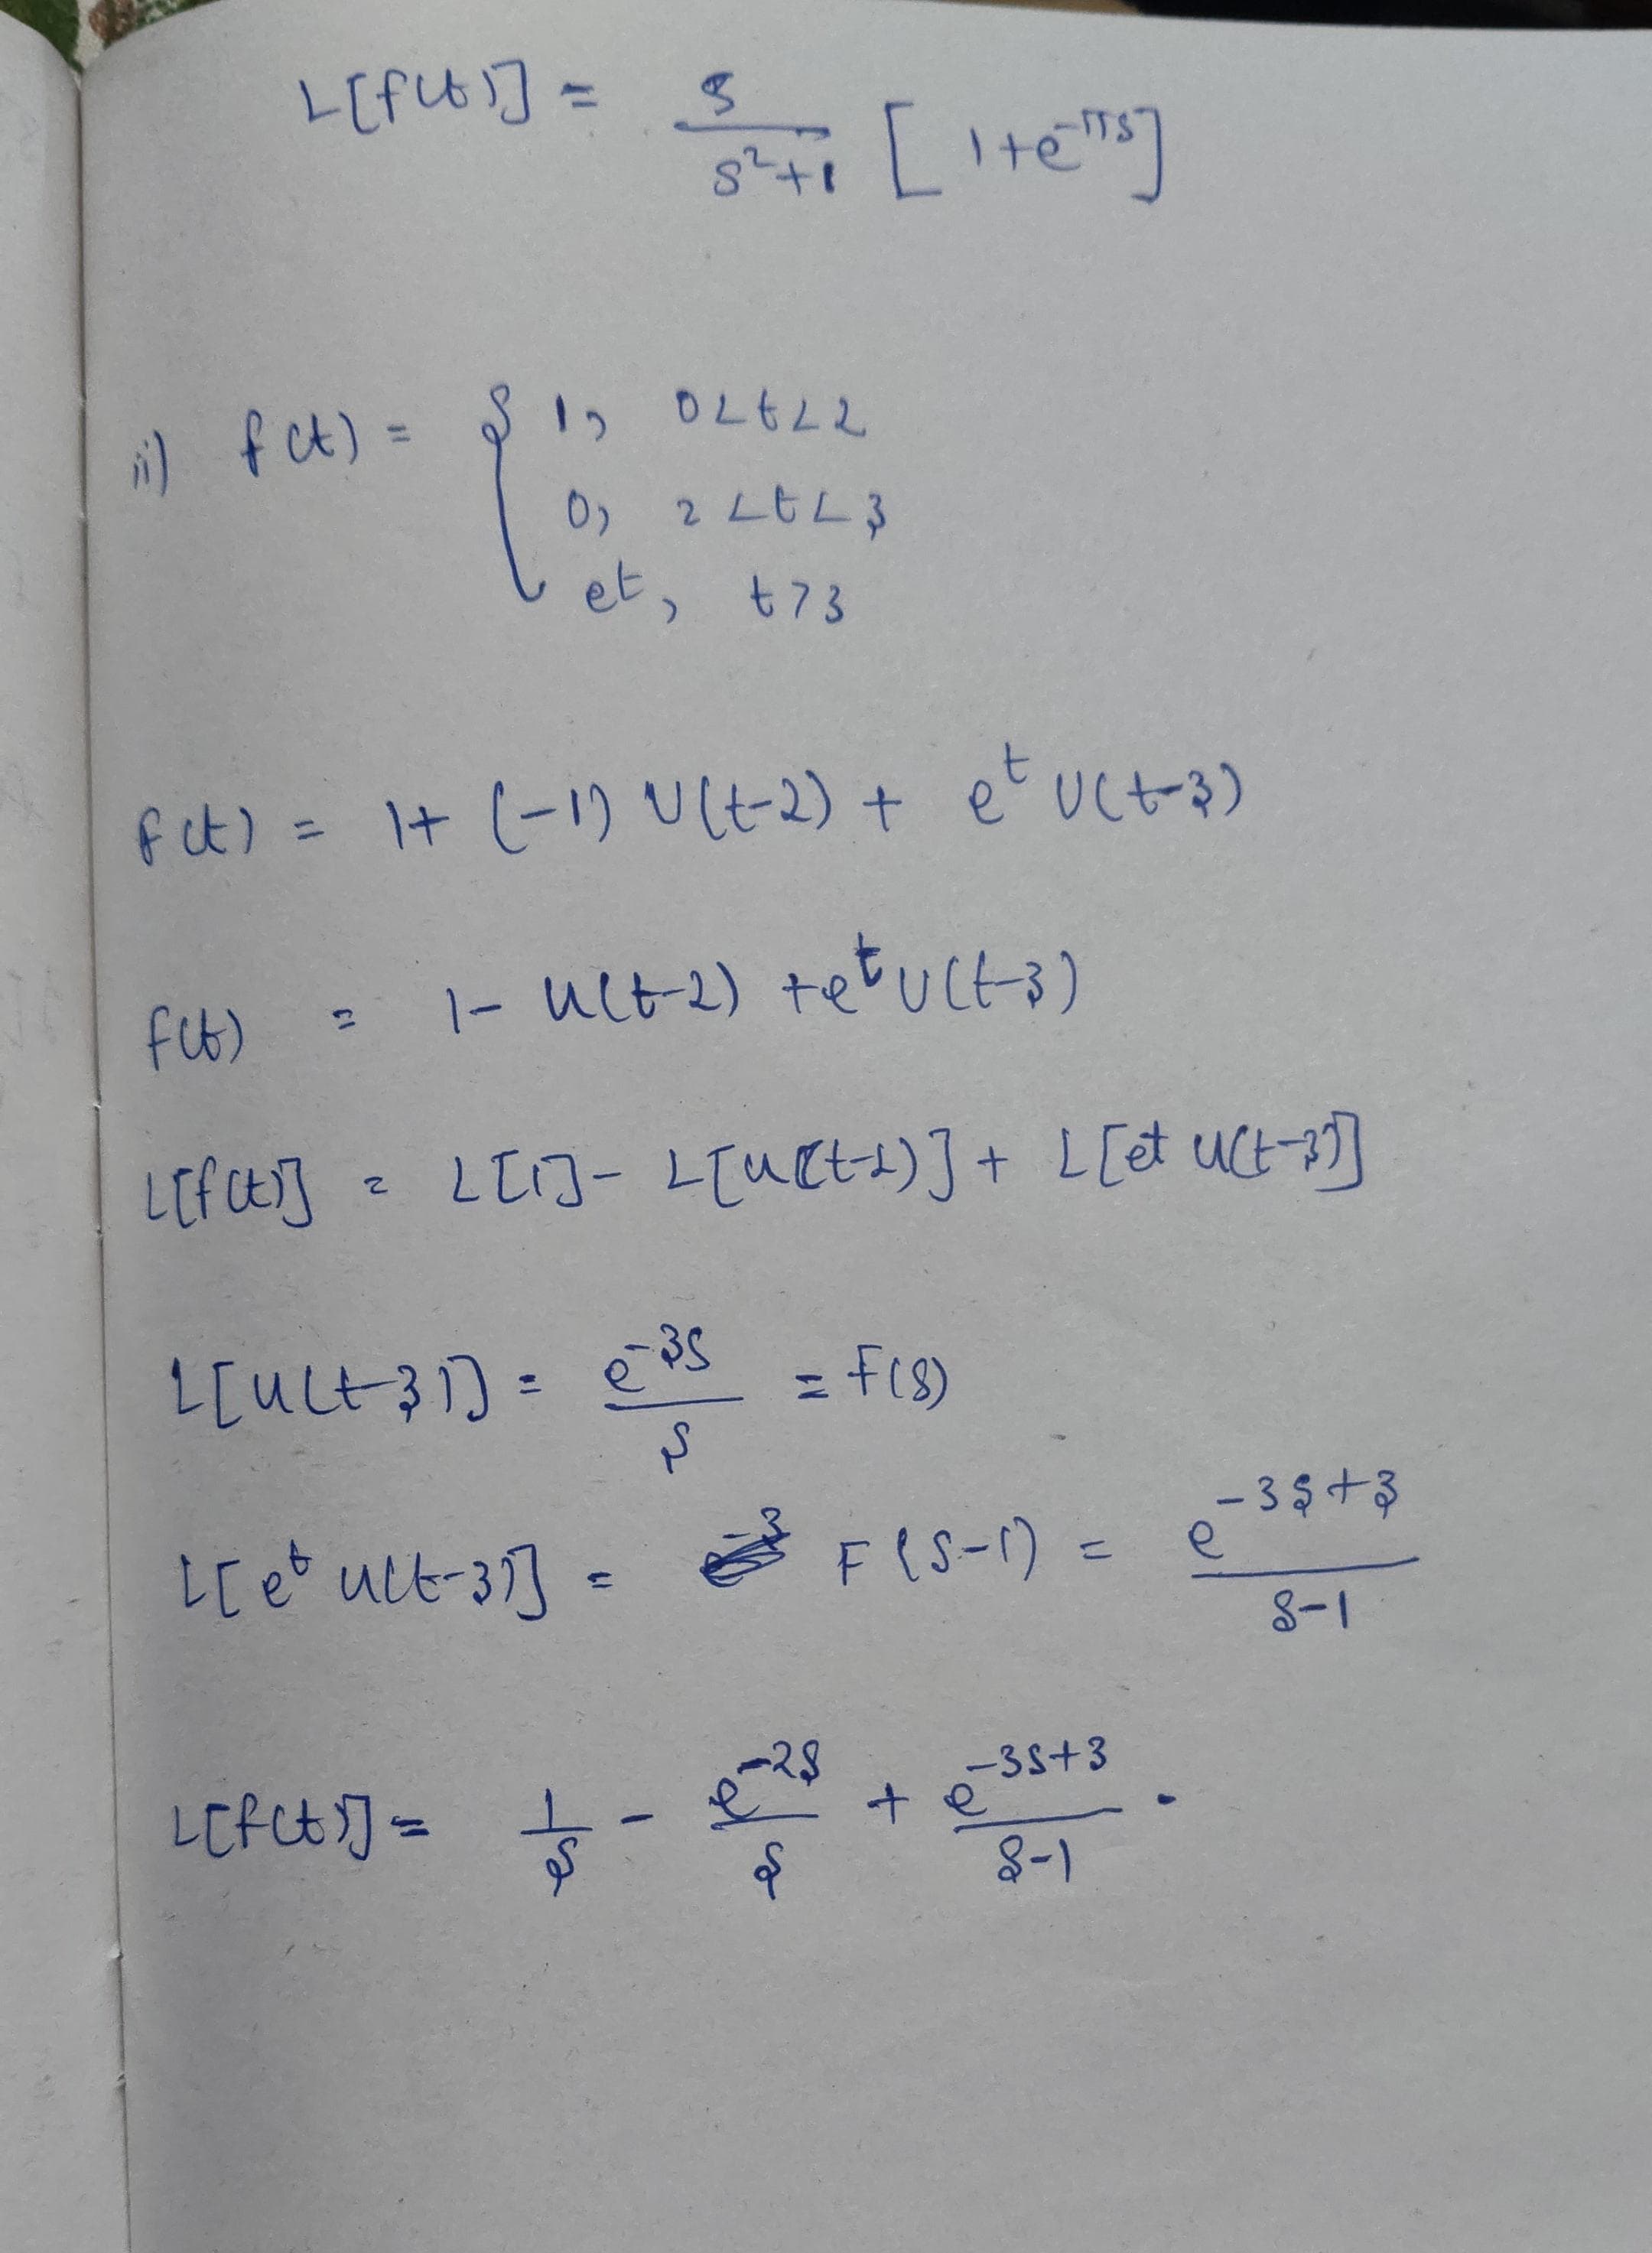 L[f(t)] = s/(s²+1) [1+e^(-πs)]
ii) f(t) = { 1, 0<t<2
0, 2<t<3
et, t>3
f(t) = 1+ (-1) U(t-2) + e^t U(t-3)
f(t) = 1- u(t-2) +e^t U(t-3)
L[f(t)] = L[1]- L[u(t-2)]+ L[et u(t-3)]
L[u(t-3)] = e^(-3s)/s = F(s)
L[e^t u(t-3)] = F(s-1) = e^(-3s+3)/(s-1)
L[f(t)] = 1/s - e^(-2s)/s + e^(-3s+3)/(s-1) .